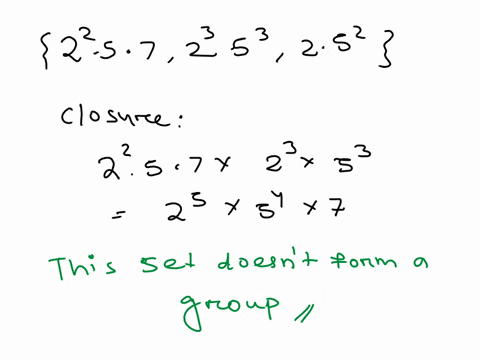 { 2².5.7, 2³ 5³, 2.5² }
Closure:
2².5.7 × 2³ × 5³
= 2⁵ × 5⁴ × 7
This set doesn't form a
group //